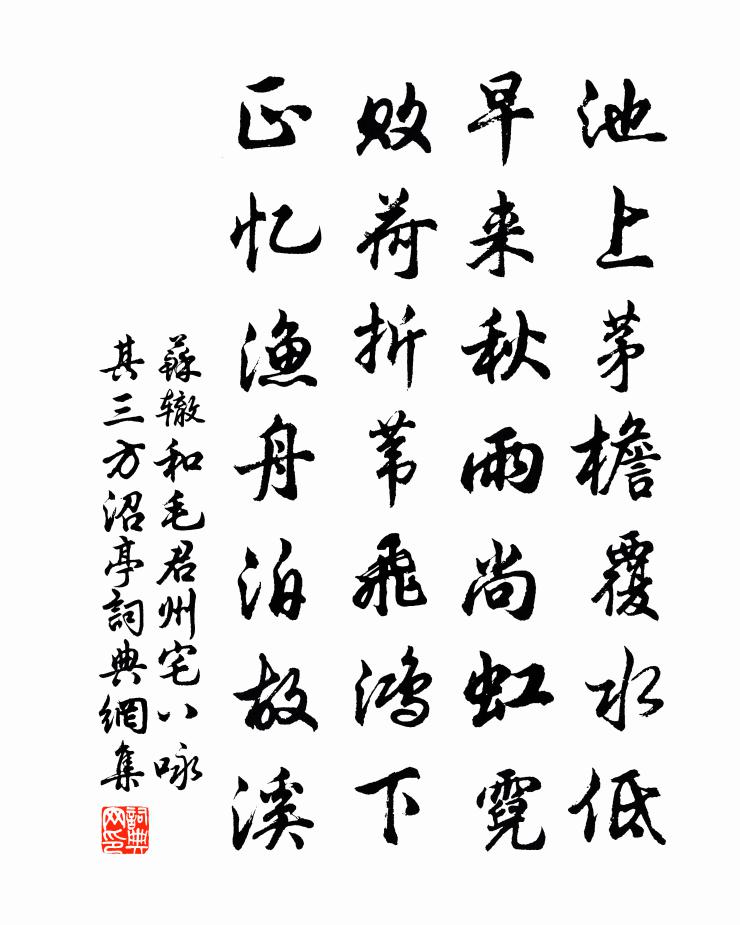 池上茅檐覆水低
早来秋雨尚虹霓
败荷折苇飞鸿下
正忆渔舟泊故溪
蘇辙和毛君州宅八咏
其三方沼亭詞典網集
詞典网印